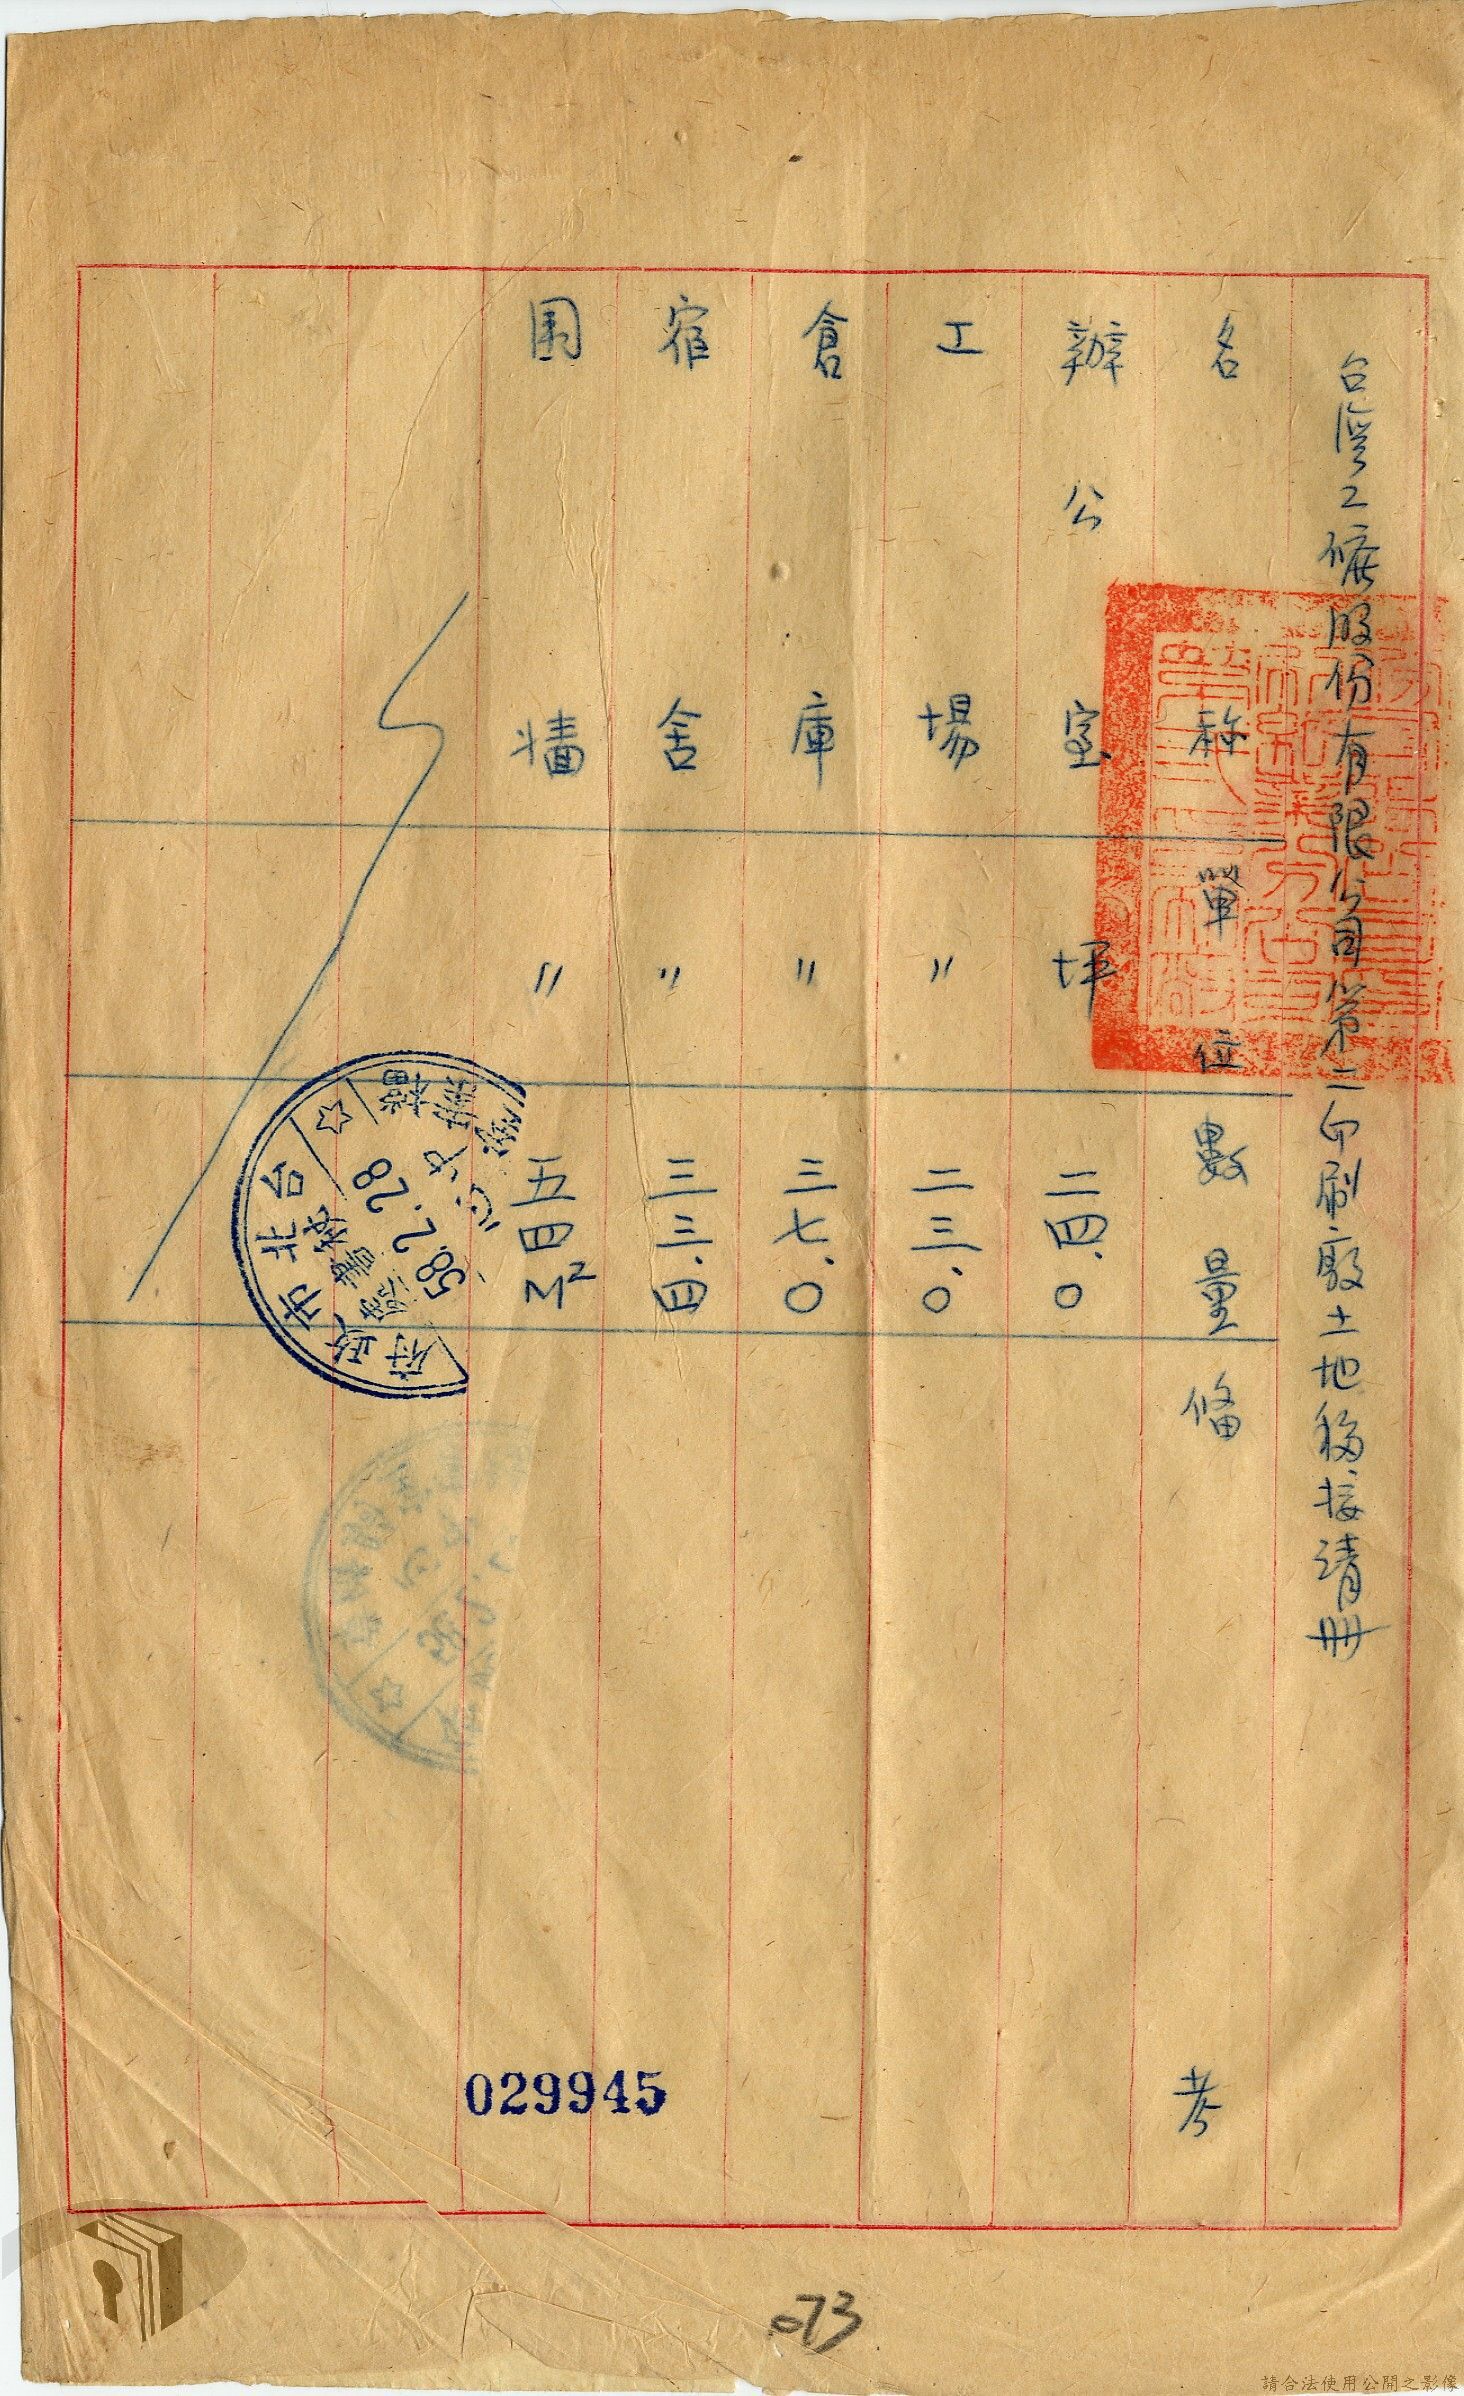 台湾工礦股份有限公司第二印刷廠土地移接清册
名稱 單位 數量 俻考
辦公室 坪 二四.〇
工場 〃 二三.〇
倉庫 〃 三七.〇
宿舍 〃 三三.四
圍墻 〃 五四M²
台北市政府
58.2.28
029945
073
請合法使用公開之影像